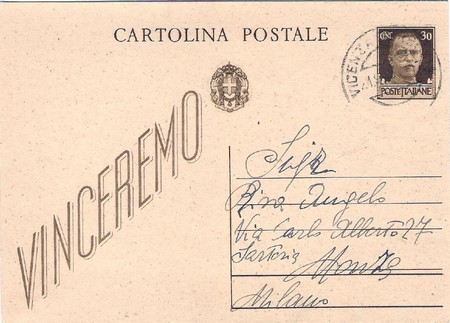 CARTOLINA POSTALE
CENT. 30
POSTE ITALIANE
VICENZA
VINCEREMO
Sig.
Riva Angelo
Via Carlo Alberto 27
Sartoria
Monza
Milano